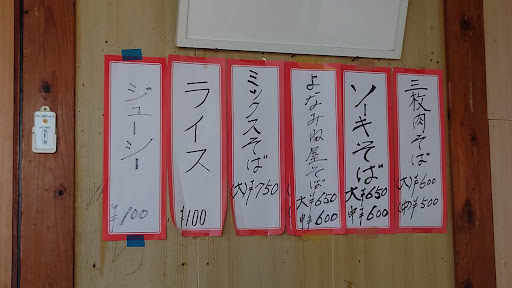 三枚肉そば
(大)¥600
(中)¥500
ソーキそば
大¥650
中¥600
よなみね屋そば
大¥650
中¥600
ミックスそば
(大)¥750
ライス
¥100
ジューシー
¥100